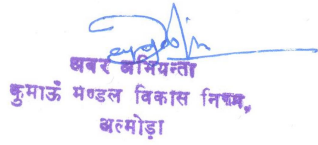 अवर अभियन्ता
कुमाऊँ मण्डल विकास निगम,
अल्मोड़ा